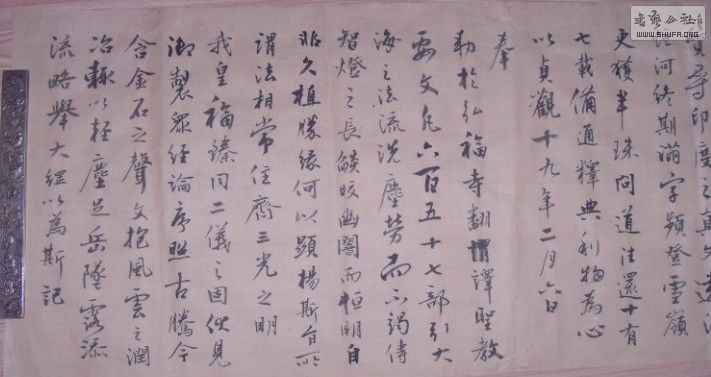 書藝公社
WWW.SHUFA.ORG
尋印度之真文遠涉
河終期滿字頻登雪嶺
更獲半珠問道往還十有
七載備通釋典利物為心
以貞觀十九年二月六日
奉
勅於弘福寺翻譯聖教
要文凡六百五十七部引大
海之法流洗塵勞而不竭傳
智燈之長燄皎幽闇而恒明自
非久植勝緣何以顯楊斯旨所
謂法相常住齊三光之明
我皇福臻同二儀之固伏見
御製眾經論序照古騰今
含金石之聲文抱風雲之潤
治輒以輕塵足岳墜露添
流略舉大綱以為斯記